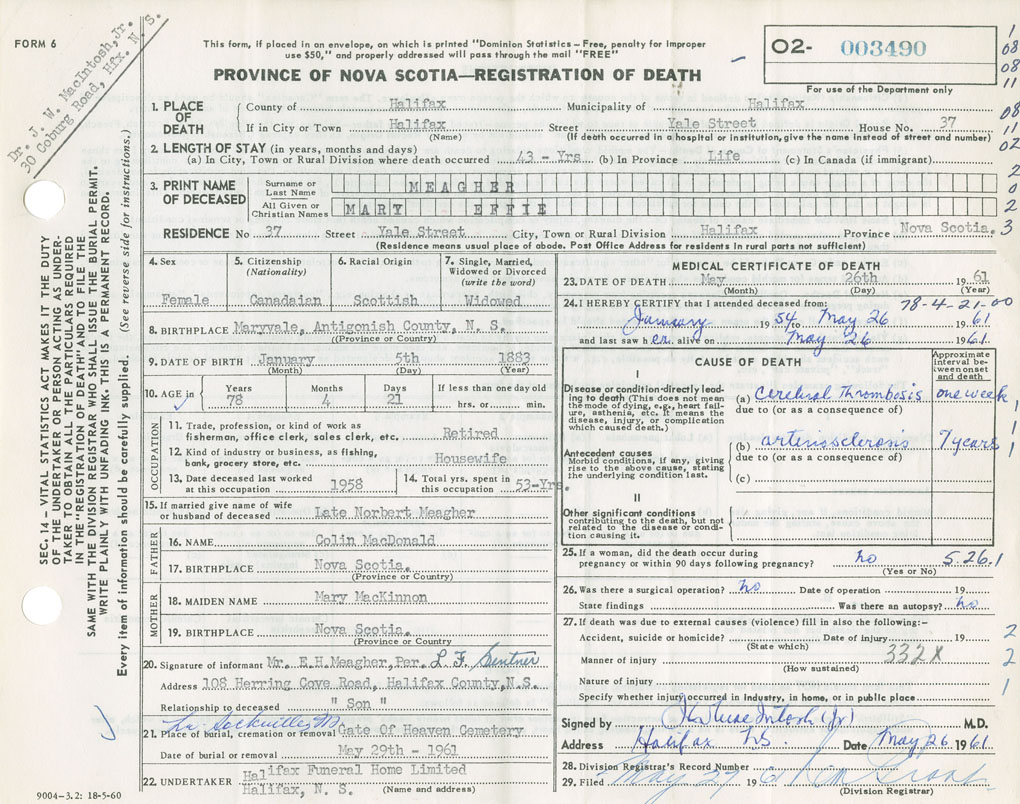 FORM 6
Dr. J. W. MacIntosh, Jr.
30 Coburg Road, Hfx. N. S.
This form, if placed in an envelope, on which is printed "Dominion Statistics – Free, penalty for improper
use $50," and properly addressed will pass through the mail "FREE"
PROVINCE OF NOVA SCOTIA—REGISTRATION OF DEATH
O2- 003490
For use of the Department only
1. PLACE OF DEATH
County of Halifax Municipality of Halifax
If in City or Town Halifax Street Yale Street House No. 37
(Name) (If death occurred in a hospital or institution, give the name instead of street and number)
2. LENGTH OF STAY (in years, months and days)
(a) In City, Town or Rural Division where death occurred 43 - Yrs (b) In Province Life (c) In Canada (if immigrant)
3. PRINT NAME OF DECEASED
Surname or Last Name MEAGHER
All Given or Christian Names MARY EFFIE
RESIDENCE No 37 Street Yale Street City, Town or Rural Division Halifax Province Nova Scotia.
(Residence means usual place of abode. Post Office Address for residents in rural parts not sufficient)
4. Sex
Female
5. Citizenship (Nationality)
Canadaian
6. Racial Origin
Scottish
7. Single, Married, Widowed or Divorced (write the word)
Widowed
8. BIRTHPLACE Maryvale, Antigonish County, N. S.
(Province or Country)
9. DATE OF BIRTH January 5th 1883
(Month) (Day) (Year)
10. AGE in
Years 78
Months 4
Days 21
If less than one day old
hrs. or min.
OCCUPATION
11. Trade, profession, or kind of work as
fisherman, office clerk, sales clerk, etc. Retired
12. Kind of industry or business, as fishing,
bank, grocery store, etc. Housewife
13. Date deceased last worked
at this occupation 1958
14. Total yrs. spent in
this occupation 53-Yrs.
15. If married give name of wife
or husband of deceased Late Norbert Meagher
FATHER
16. NAME Colin MacDonald
17. BIRTHPLACE Nova Scotia.
(Province or Country)
MOTHER
18. MAIDEN NAME Mary MacKinnon
19. BIRTHPLACE Nova Scotia.
(Province or Country
20. Signature of informant Mr. E.H.Meagher, Per. L. F.
Address 108 Herring Cove Road, Halifax County,N.S.
Relationship to deceased " Son "
Lr. Sackville
21. Place of burial, cremation or removal Gate Of Heaven Cemetery
Date of burial or removal May 29th - 1961
22. UNDERTAKER Halifax Funeral Home Limited
Halifax, N. S. (Name and address)
9004–3.2: 18-5-60
MEDICAL CERTIFICATE OF DEATH
23. DATE OF DEATH May 26th 1961
(Month) (Day) (Year)
24. I HEREBY CERTIFY that I attended deceased from: 78-4-21-00
January 1954 to May 26 1961
and last saw her alive on May 26 1961
CAUSE OF DEATH
Approximate interval between onset and death
I
Disease or condition-directly leading to death (This does not mean the mode of dying, e.g., heart failure, asthenia, etc. It means the disease, injury, or complication which caused death.)
(a) Cerebral Thrombosis one week
due to (or as a consequence of)
Antecedent causes
Morbid conditions, if any, giving rise to the above cause, stating the underlying condition last.
(b) arteriosclerosis 7 years
due to (or as a consequence of)
(c)
II
Other significant conditions
contributing to the death, but not related to the disease or condition causing it.
25. If a woman, did the death occur during
pregnancy or within 90 days following pregnancy? no 5.26.1
(Yes or No)
26. Was there a surgical operation? no Date of operation 19
State findings Was there an autopsy? no
27. If death was due to external causes (violence) fill in also the following:-
Accident, suicide or homicide? Date of injury 19
(State which)
Manner of injury 332X
(How sustained)
Nature of injury
Specify whether injury occurred in industry, in home, or in public place
Signed by J W MacIntosh (Jr) M.D.
Address Halifax N.S. Date May 26 1961
28. Division Registrar's Record Number
29. Filed May 29 1961
(Division Registrar)
SEC. 14 – VITAL STATISTICS ACT MAKES IT THE DUTY
OF THE UNDERTAKER OR PERSON ACTING AS UNDER-
TAKER TO OBTAIN ALL THE PARTICULARS REQUIRED
IN THE "REGISTRATION OF DEATH" AND TO FILE THE
SAME WITH THE DIVISION REGISTRAR WHO SHALL ISSUE THE BURIAL PERMIT.
WRITE PLAINLY WITH UNFADING INK. THIS IS A PERMANENT RECORD.
Every item of information should be carefully supplied. (See reverse side for instructions.)
1
08
08
11
08
11
02
2
0
2
3
1
1
1
2
2
1